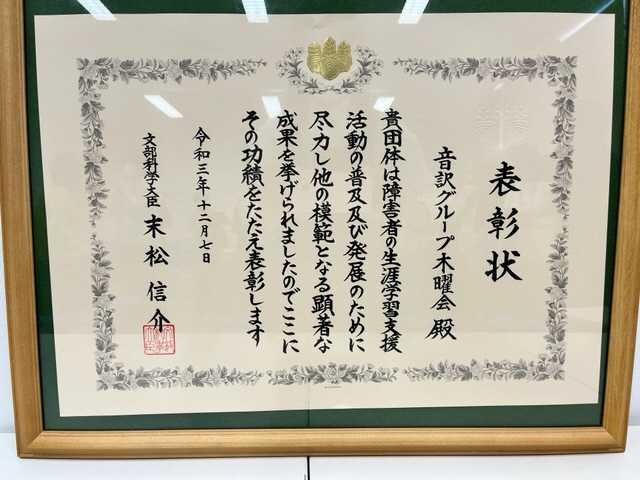 表彰状
音訳グループ木曜会 殿
貴団体は障害者の生涯学習支援
活動の普及及び発展のために
尽力し他の模範となる顕著な
成果を挙げられましたのでここに
その功績をたたえ表彰します
令和三年十二月七日
文部科学大臣 末松信介